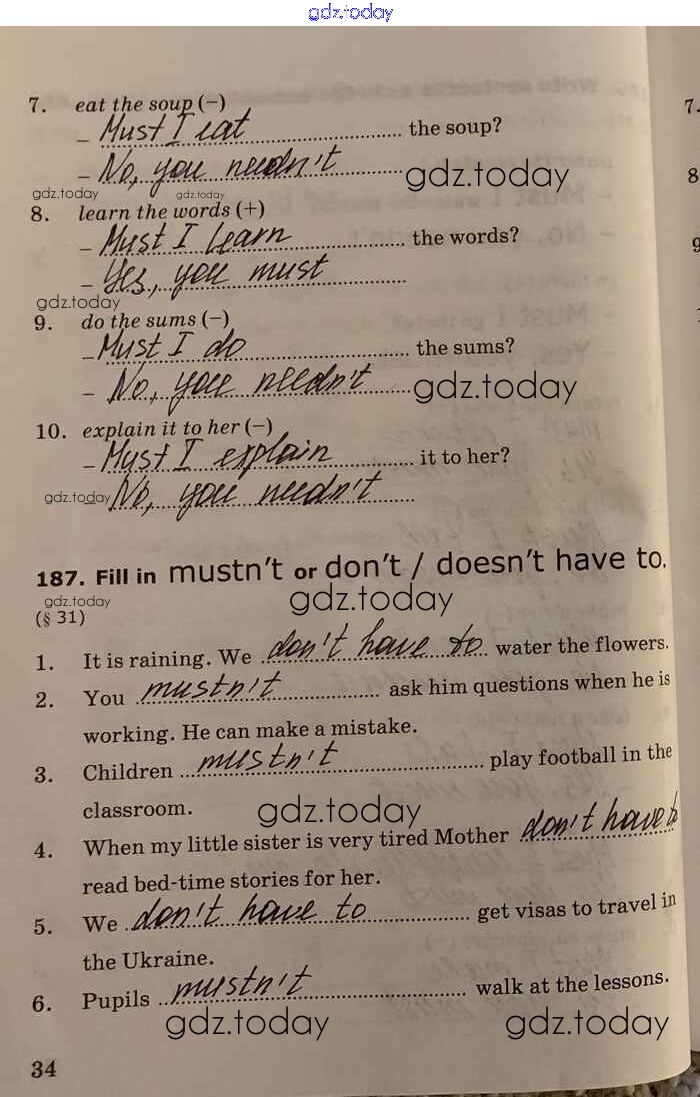 gdz.today
7. eat the soup (–)
– Must I eat the soup?
– No, you needn't
gdz.today
gdz.today gdz.today
8. learn the words (+)
– Must I learn the words?
– Yes, you must
gdz.today
9. do the sums (–)
– Must I do the sums?
– No, you needn't
gdz.today
10. explain it to her (–)
– Must I explain it to her?
– No, you needn't
gdz.today
187. Fill in mustn't or don't / doesn't have to.
gdz.today
gdz.today
(§ 31)
1. It is raining. We don't have to water the flowers.
2. You mustn't ask him questions when he is
working. He can make a mistake.
3. Children mustn't play football in the
classroom.
gdz.today
4. When my little sister is very tired Mother don't have to
read bed-time stories for her.
5. We don't have to get visas to travel in
the Ukraine.
6. Pupils mustn't walk at the lessons.
gdz.today gdz.today
34
7.
8
9